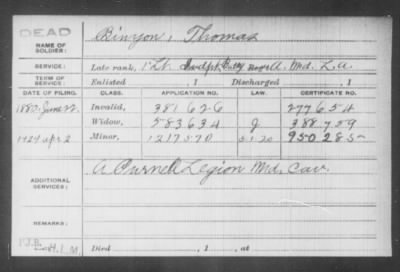 DEAD
NAME OF SOLDIER: Binyon, Thomas
SERVICE: Late rank, 1 Lt. Indpt. Batty Md. L.A.
TERM OF SERVICE: Enlisted , 1 Discharged , 1
DATE OF FILING. CLASS. APPLICATION NO. LAW. CERTIFICATE NO.
1880, June 22. Invalid, 381626 277654
Widow, 583634 J 388759
1924 Apr 2 Minor, 1217570 950285
ADDITIONAL SERVICES: A Purnell Legion Md. Cav.
REMARKS:
Died , 1 , at